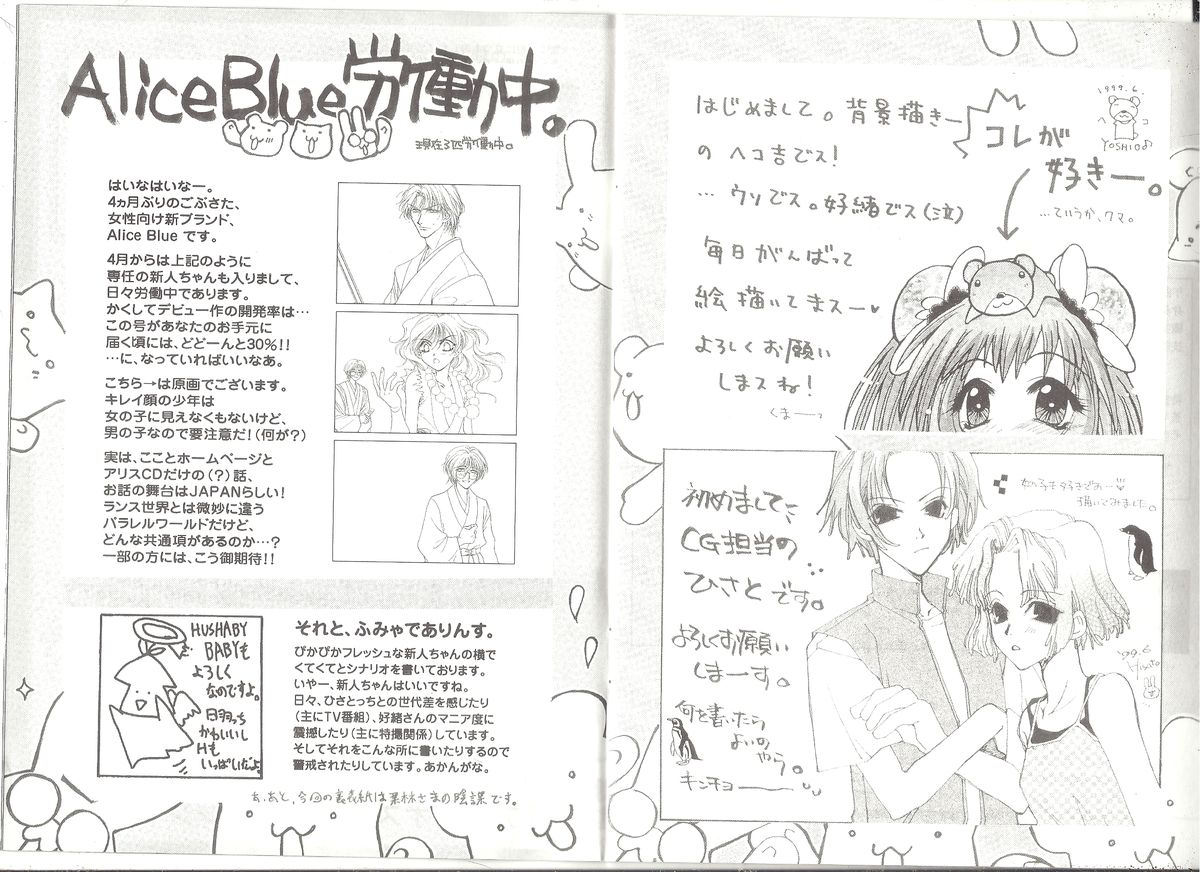 AliceBlue労働中。
現在3匹労働中。
はいなはいなー。
4ヵ月ぶりのごぶさた、
女性向け新ブランド、
Alice Blue です。
4月からは上記のように
専任の新人ちゃんも入りまして、
日々労働中であります。
かくしてデビュー作の開発率は…
この号があなたのお手元に
届く頃には、どどーんと30%!!
…に、なっていればいいなあ。
こちら→は原画でございます。
キレイ顔の少年は
女の子に見えなくもないけど、
男の子なので要注意だ!(何が?)
実は、こことホームページと
アリスCDだけの(?)話、
お話の舞台はJAPANらしい!
ランス世界とは微妙に違う
パラレルワールドだけど、
どんな共通項があるのか…?
一部の方には、こう御期待!!
HUSHABY
BABYも
よろしく
なのですよ。
日羽っち
かわいいし
Hも
いっぱいだよ
それと、ふみゃでありんす。
ぴかぴかフレッシュな新人ちゃんの横で
くてくてとシナリオを書いております。
いやー、新人ちゃんはいいですね。
日々、ひさとっちとの世代差を感じたり
(主にTV番組)、好緒さんのマニア度に
震撼したり(主に特撮関係)しています。
そしてそれをこんな所に書いたりするので
警戒されたりしています。あかんがな。
あ、あと、今回の裏表紙は果林さまの陰謀です。
はじめまして。背景描きー
の ヘコ吉でス!
… ウソでス。好緒でス(泣)
毎日がんばって
絵描いてまスー♥
よろしくお願い
しまスね!
くまーっ
コレが
好きー。
…ていうか、クマ。
1999.6.
ヘコ
YOSHIO♪
初めまして、
CG担当の
ひさとです。
よろしくお願い
しまーす。
何を書いたら
よいのやう。
キンチョー
女の子も好きでおー♥
描いてみました。
'99.6
Hisato